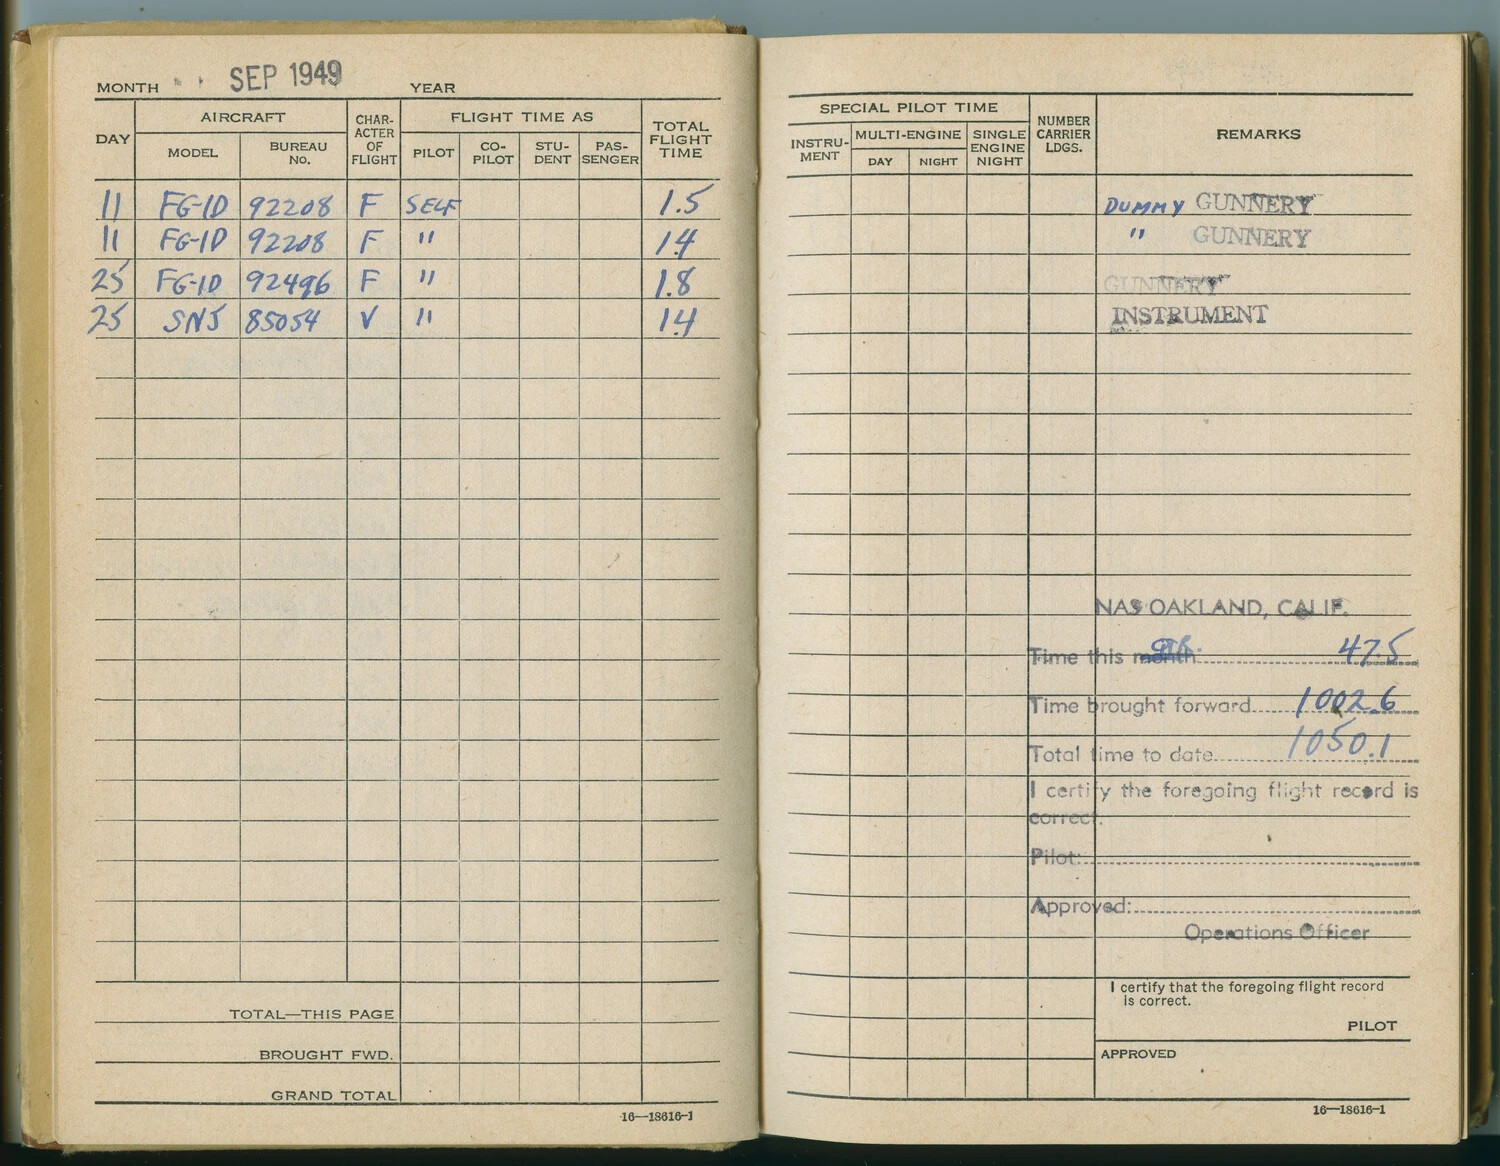 MONTH SEP 1949 YEAR
DAY AIRCRAFT CHAR-ACTER OF FLIGHT FLIGHT TIME AS TOTAL FLIGHT TIME
MODEL BUREAU No. PILOT CO-PILOT STU-DENT PAS-SENGER
11 FG-1D 92208 F SELF 1.5
11 FG-1D 92208 F " 1.4
25 FG-1D 92496 F " 1.8
25 SNJ 85054 V " 1.4
TOTAL—THIS PAGE
BROUGHT FWD.
GRAND TOTAL
16—18616-1
SPECIAL PILOT TIME NUMBER CARRIER LDGS. REMARKS
INSTRU-MENT MULTI-ENGINE SINGLE ENGINE NIGHT
DAY NIGHT
DUMMY GUNNERY
" GUNNERY
GUNNERY
INSTRUMENT
NAS OAKLAND, CALIF.
Time this month 47.5
Time brought forward 1002.6
Total time to date 1050.1
I certify the foregoing flight record is
correct.
Pilot:
Approved:
Operations Officer
I certify that the foregoing flight record
is correct.
PILOT
APPROVED
16—18616-1